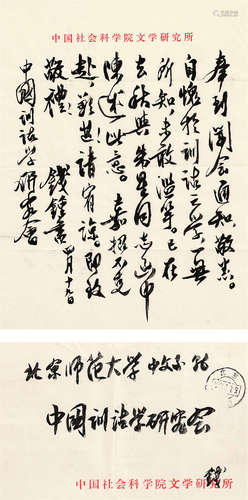 中国社会科学院文学研究所
奉到開会通知敬悉。
自愧於訓诂之学一無
所知，未敢滥竽。已在
去秋與朱星同志函中
陳述此意。嘉招不克
赴，歉甚！請宥諒。即致
敬礼！ 錢鍾書 月十日
中國訓诂学研究会
北京师范大学中文系转
中国訓诂学研究会
中国社会科学院文学研究所 钱